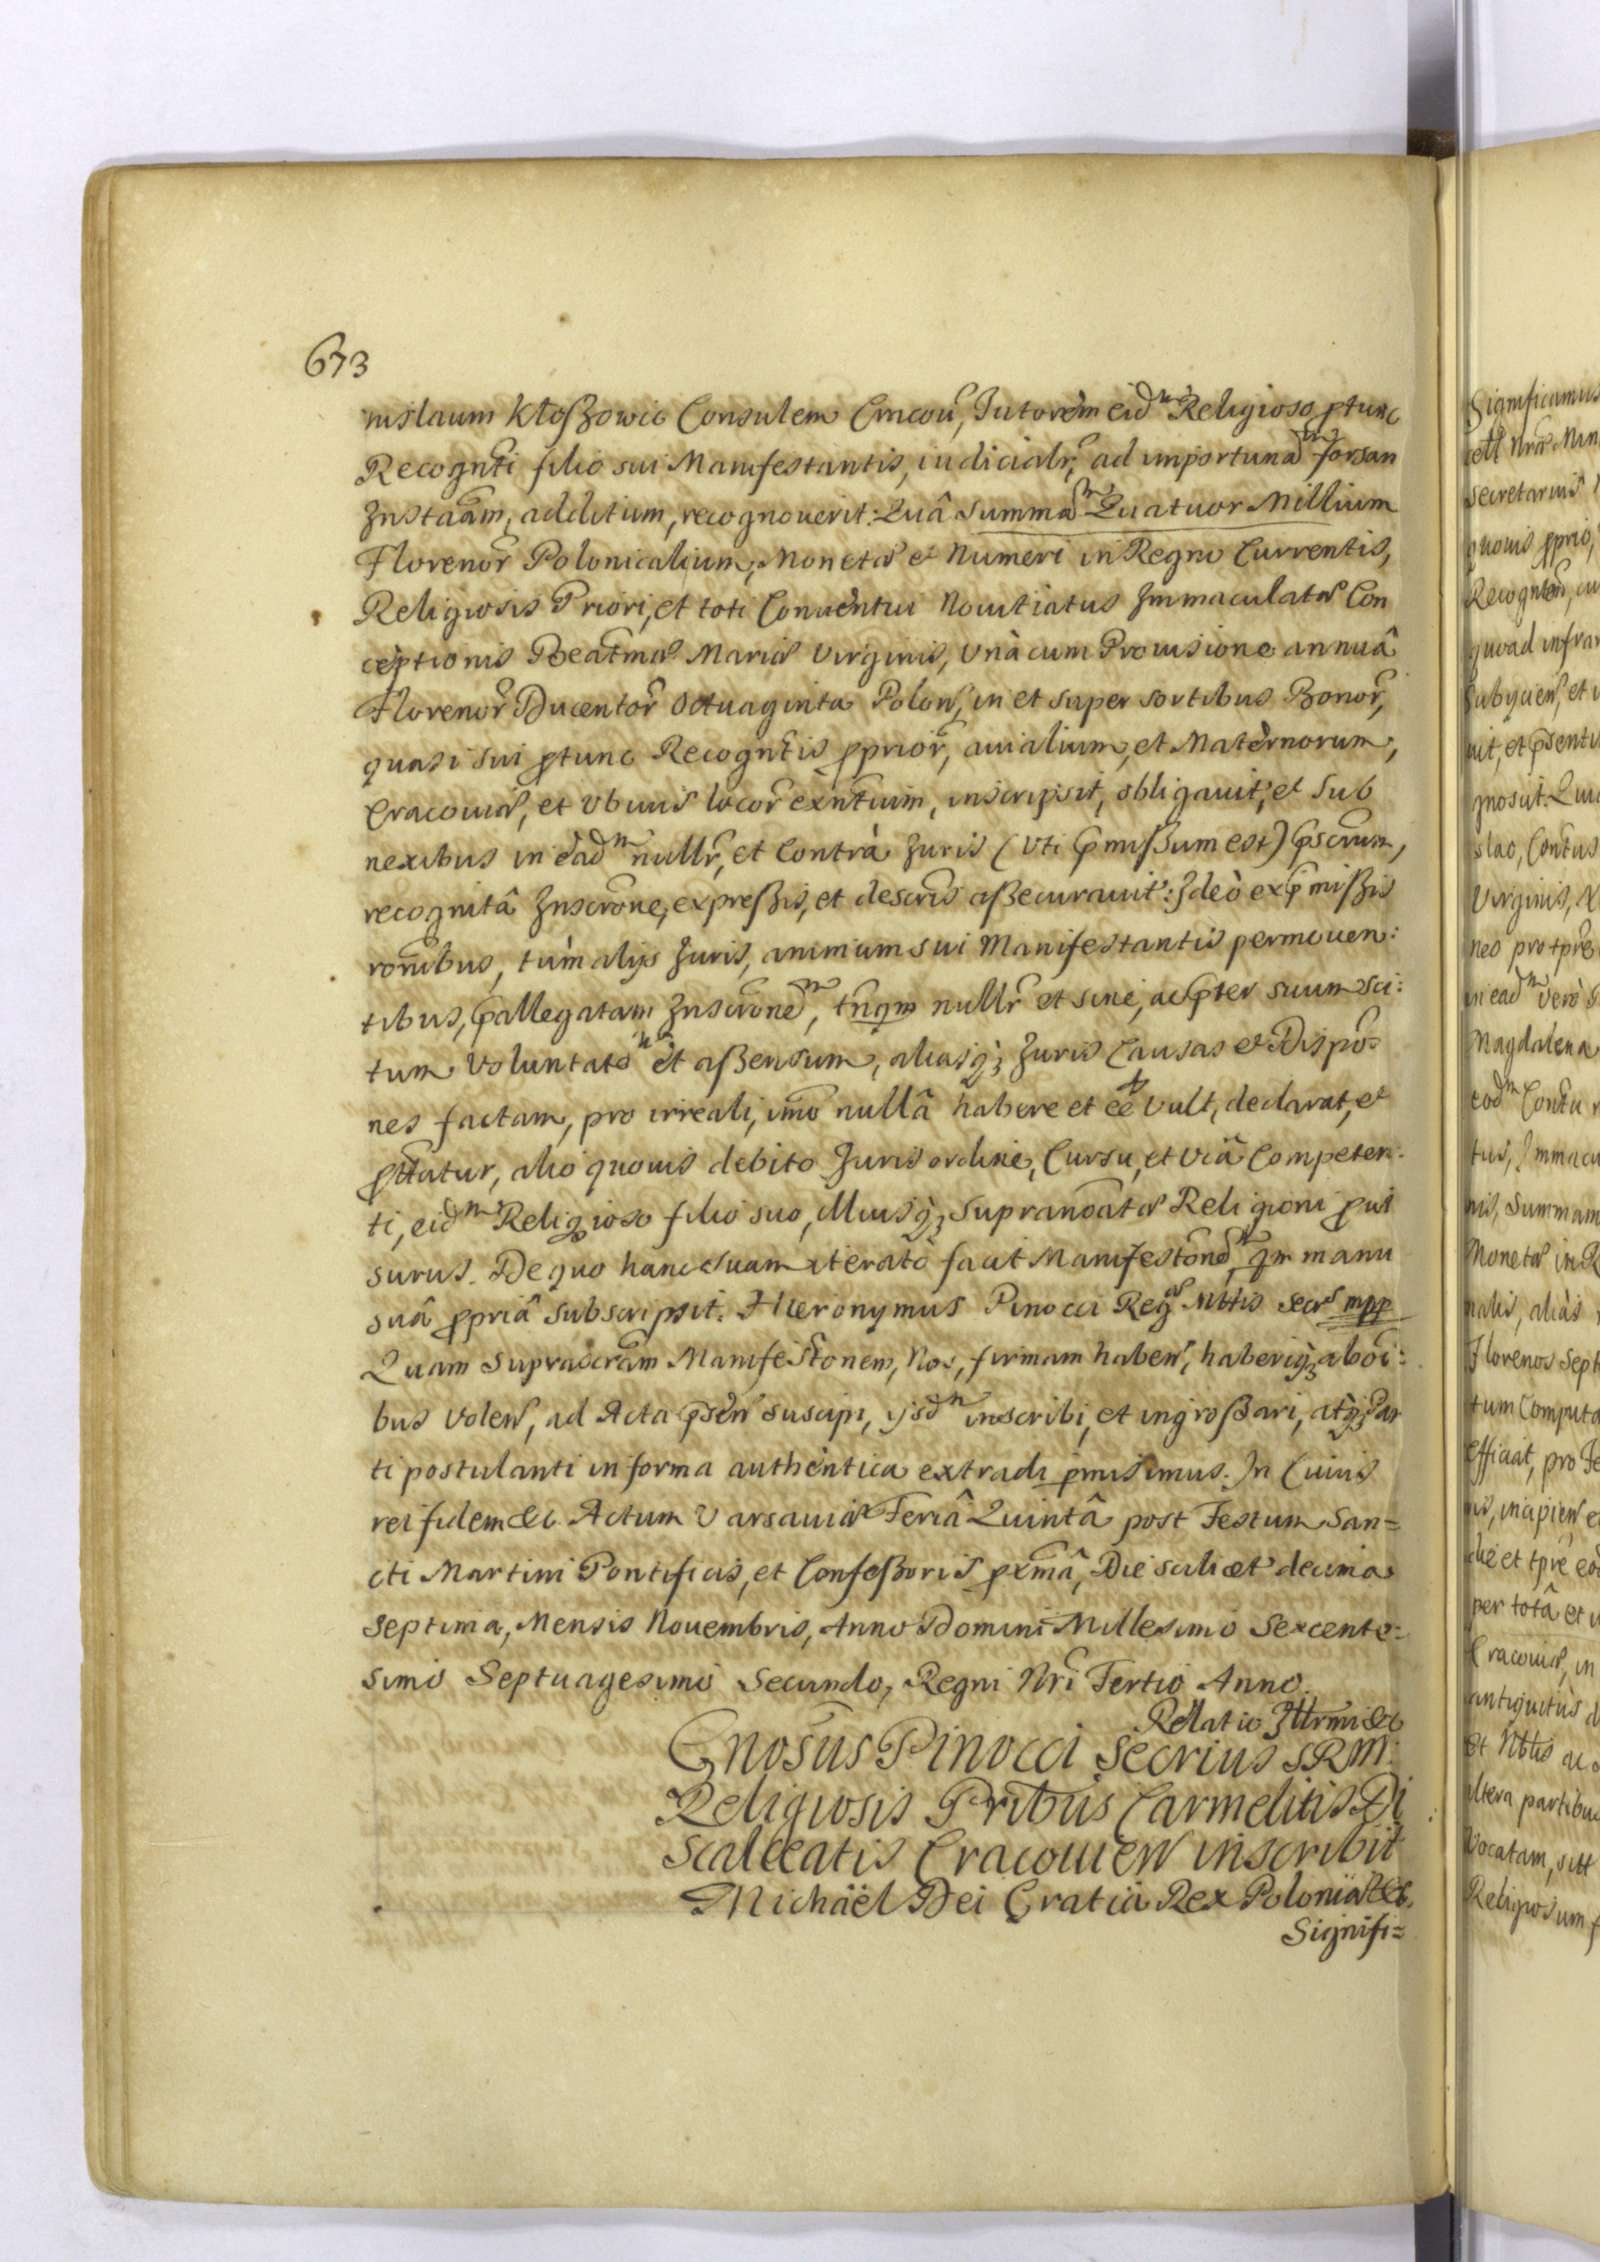 673
nislaum Kłoszowic Consulem Cracov, Tutorem eidm Religioso ptunc
Recognti filio sui Manifestantis, iudicialr, ad importunam forsan
Instaãm, additum, recognouerit: Quâ summam Quatuor Millium
Florenor Polonicalium, Monetæ et Numeri in Regno Currentis,
Religiosis Priori, et toti Conuentui Nouitiatus Immaculatæ Con
ceptionis Beatmæ Mariæ Virginis, Vnà cum Prouisione annuâ
Florenor Ducentor Octuaginta Polon, in et super sortibus Bonor,
quasi sui ptunc Recogntis pprior, auialium, et Maternorum,
Cracouiæ, et Vbiuis locor exntium, inscripsit, obligauit, et Sub
nexibus in eadm nullr, et Contrà Juris (Vti pmißum est) pscrum,
recognitâ Inscrone, expreßis, et descris aßecurauit: Ideò ex pmißis
ronibus, tùm alijs Juris, animum sui Manifestantis permouen:
tibus, pallegatam Inscronem, tnqm nullr et sine, ac pter suum sci:
tum Voluntatem et aßensum, aliasq3 Juris Causas et Dispo=
nes factam, pro irreali, imo nullâ habere et eê Vult, declarat, et
pttatur, alio quouis debito Juris ordine, Cursu, et Viâ Competen:
ti, eidm Religioso filio suo, illiusq3 Supranoatæ Religioni pui
surus. De quo hanc suam iterato facit Manifestonem, qm manu
suâ ppriâ subscripsit. Hieronymus Pinocci Regæ Mttis Secrs mpp
Quam Suprascram Manifestonem, Nos, firmam haben, haberiq3 ab oi:
bus Volen, ad Acta psen suscipi, ijsdm inscribi, et ingroßari, atq3 Par
ti postulanti in forma authentica extradi pmisimus. In Cuius
rei fidem &c. Actum Varsauiæ Feriâ Quintâ post Festum San=
cti Martini Pontificis, et Confeßoris pxmâ, Die scilicet decima
septima, Mensis Nouembris, Anno Domini Millesimo Sexcente=
simo Septuagesimo Secundo, Regni Nri Tertio Anno.
Relatio Illrmi &c
Gnosus Pinocci Secrius SRM:
Religiosis Pribus Carmelitis Di
scalceatis Cracouien inscribit
Michaël Dei Gratia Rex Poloniæ &c.
Signifi=
Significamus
secretarius
quouis pprio,
quoad infra
Virginis,
Magdalena
nis, Summam
Moneta in R
malis, aliàs
Florenos Sept
tum Computa
efficiat, pro Fe
per totâ et
Cracouiæ, in
antiquitùs d
altera partibus
Vocatam, sitt
Religiosum f